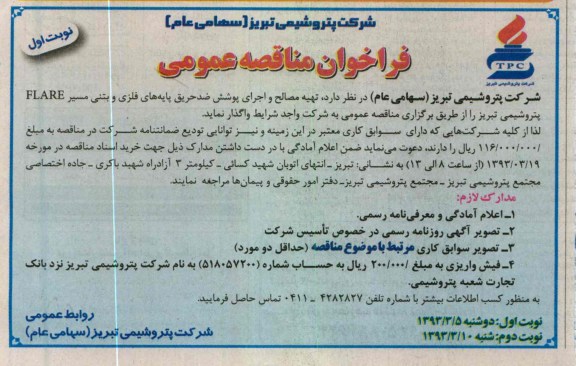 شرکت پتروشیمی تبریز (سهامی عام)
نوبت اول
فراخوان مناقصه عمومی
TPC
شرکت پتروشیمی تبریز
شرکت پتروشیمی تبریز (سهامی عام) در نظر دارد، تهیه مصالح و اجرای پوشش ضدحریق پایه‌های فلزی و بتنی مسیر FLARE
پتروشیمی تبریز را از طریق برگزاری مناقصه عمومی به شرکت واجد شرایط واگذار نماید.
لذا از کلیه شرکت‌هایی که دارای سوابق کاری معتبر در این زمینه و نیز توانایی تودیع ضمانتنامه شرکت در مناقصه به مبلغ
۱۱۶/۰۰۰/۰۰۰/ ریال را دارند، دعوت می‌نماید ضمن اعلام آمادگی با در دست داشتن مدارک ذیل جهت خرید اسناد مناقصه در مورخه
۱۳۹۳/۰۳/۱۹ (از ساعت ۸ الی ۱۳) به نشانی: تبریز ـ انتهای اتوبان شهید کسائی ـ کیلومتر ۳ آزادراه شهید باکری ـ جاده اختصاصی
مجتمع پتروشیمی تبریز ـ مجتمع پتروشیمی تبریز ـ دفتر امور حقوقی و پیمان‌ها مراجعه نمایند.
مدارک لازم:
۱ـ اعلام آمادگی و معرفی‌نامه رسمی.
۲ـ تصویر آگهی روزنامه رسمی در خصوص تأسیس شرکت
۳ـ تصویر سوابق کاری مرتبط با موضوع مناقصه (حداقل دو مورد)
۴ـ فیش واریزی به مبلغ ۲۰۰/۰۰۰ ریال به حساب شماره (۵۱۸۰۵۷۲۰۰) به نام شرکت پتروشیمی تبریز نزد بانک
تجارت شعبه پتروشیمی.
به منظور کسب اطلاعات بیشتر با شماره تلفن ۴۲۸۲۸۲۷ ـ ۰۴۱۱ تماس حاصل فرمایید.
نوبت اول: دوشنبه ۱۳۹۳/۳/۵
نوبت دوم: شنبه ۱۳۹۳/۳/۱۰
روابط عمومی
شرکت پتروشیمی تبریز (سهامی عام)